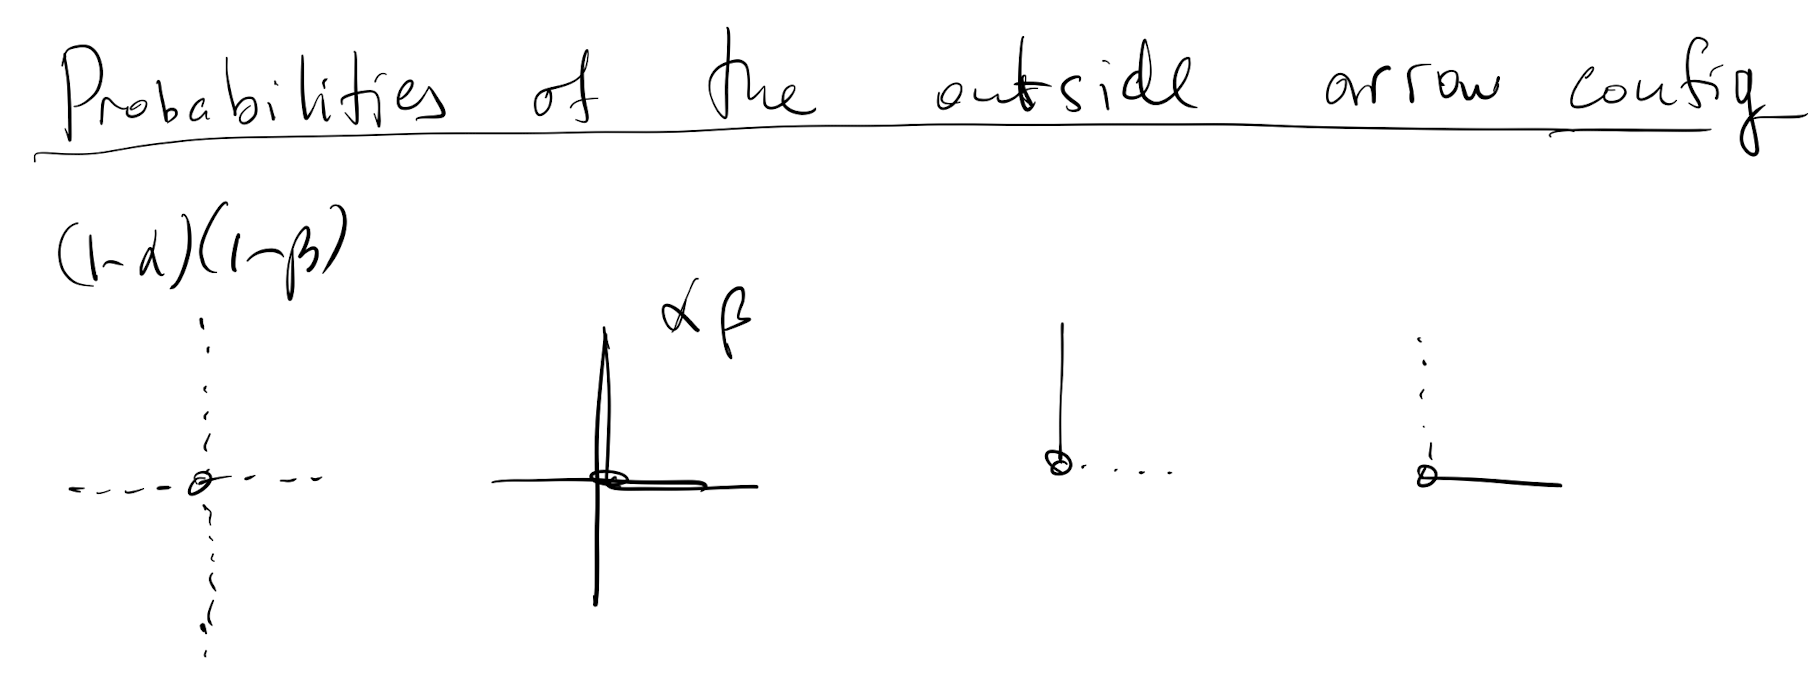 Probabilities of the outside arrow config
(1-α)(1-β)
αβ